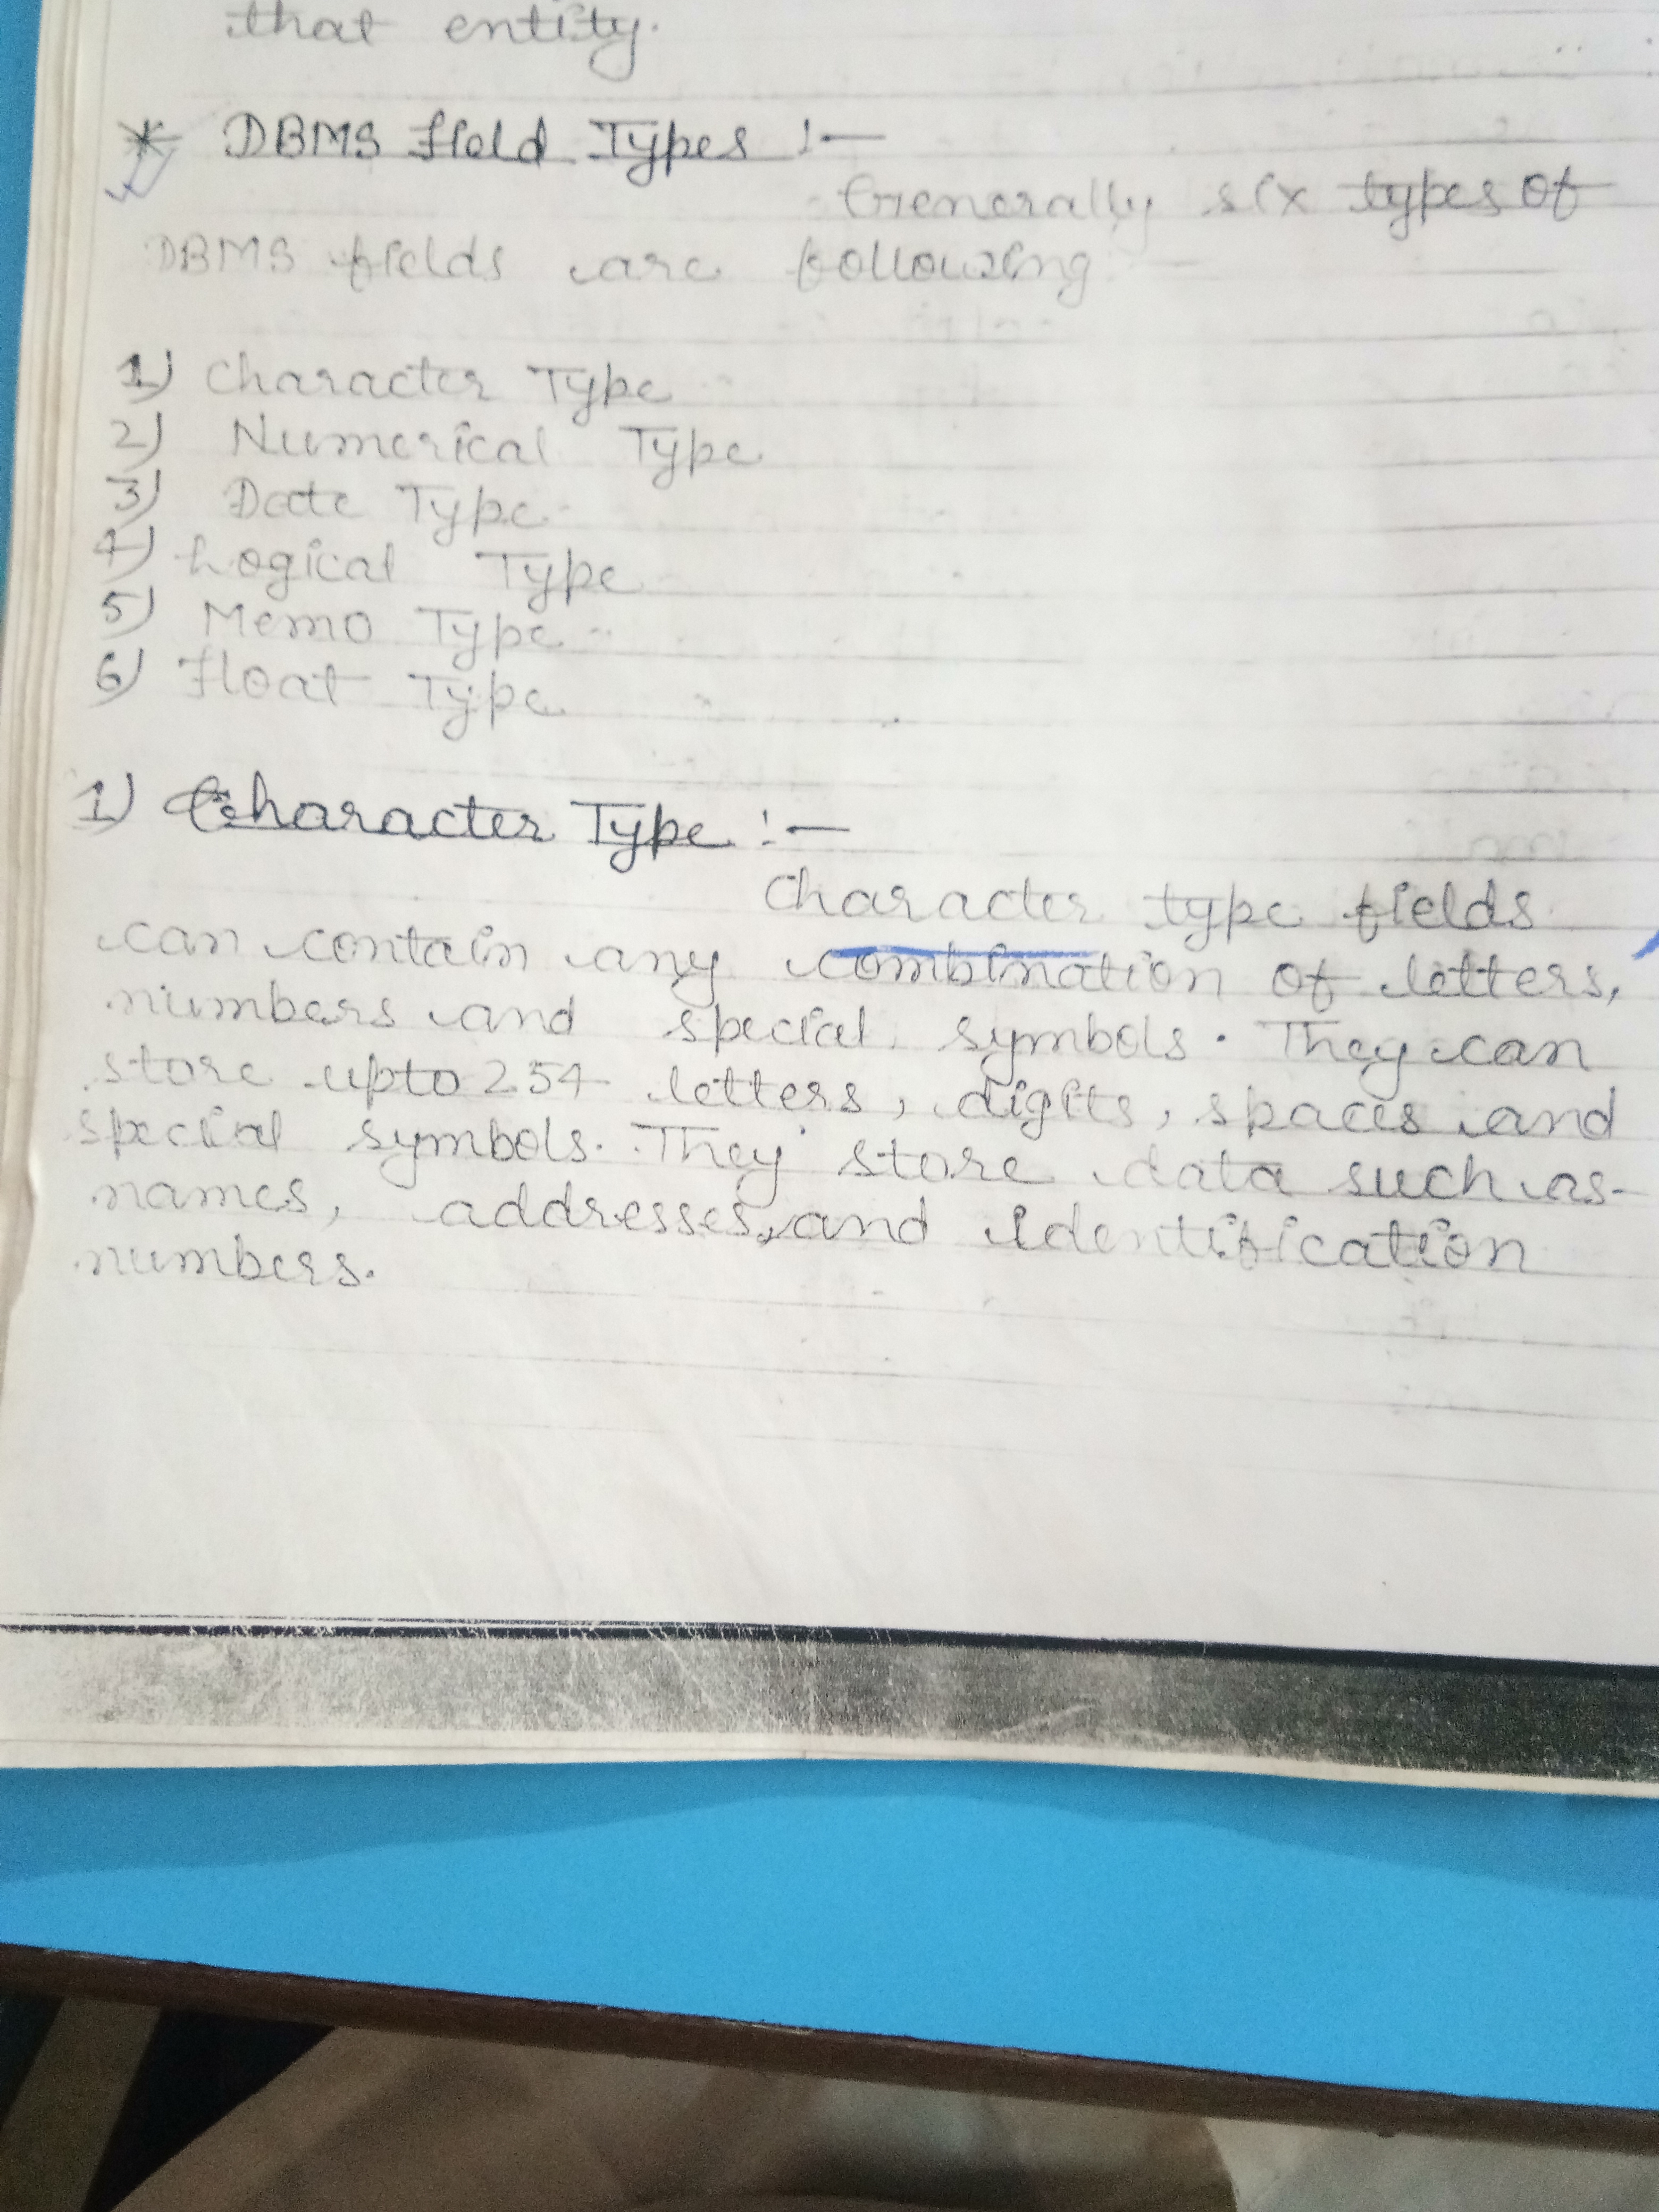 that entity.
* DBMS Field Types :-
Generally six types of
DBMS fields are following -
1) Character Type
2) Numerical Type
3) Date Type
4) Logical Type
5) Memo Type
6) Float Type
1) Character Type :-
Character type fields
can contain any combination of letters,
numbers and special symbols. They can
store upto 254 letters, digits, spaces and
special symbols. They store data such as-
names, addresses, and identification
numbers.